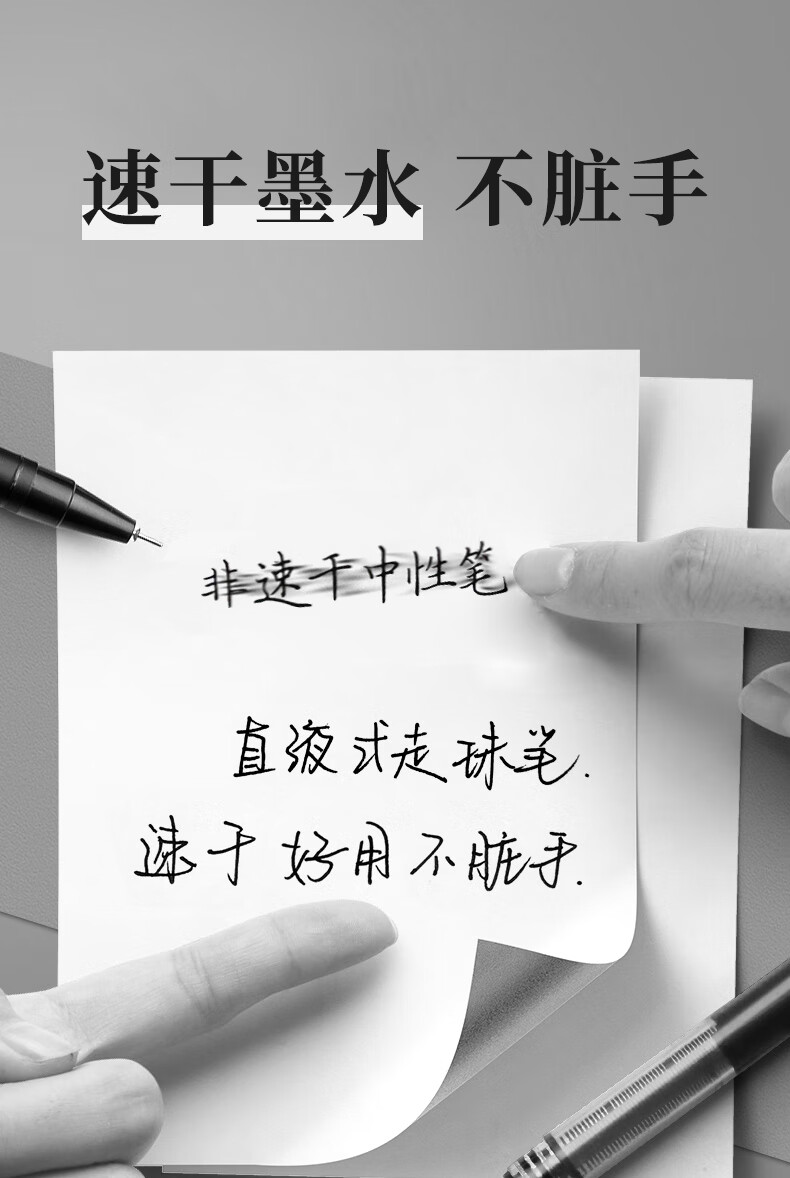 速干墨水 不脏手
非速干中性笔
直液式走珠笔.
速干 好用不脏手.